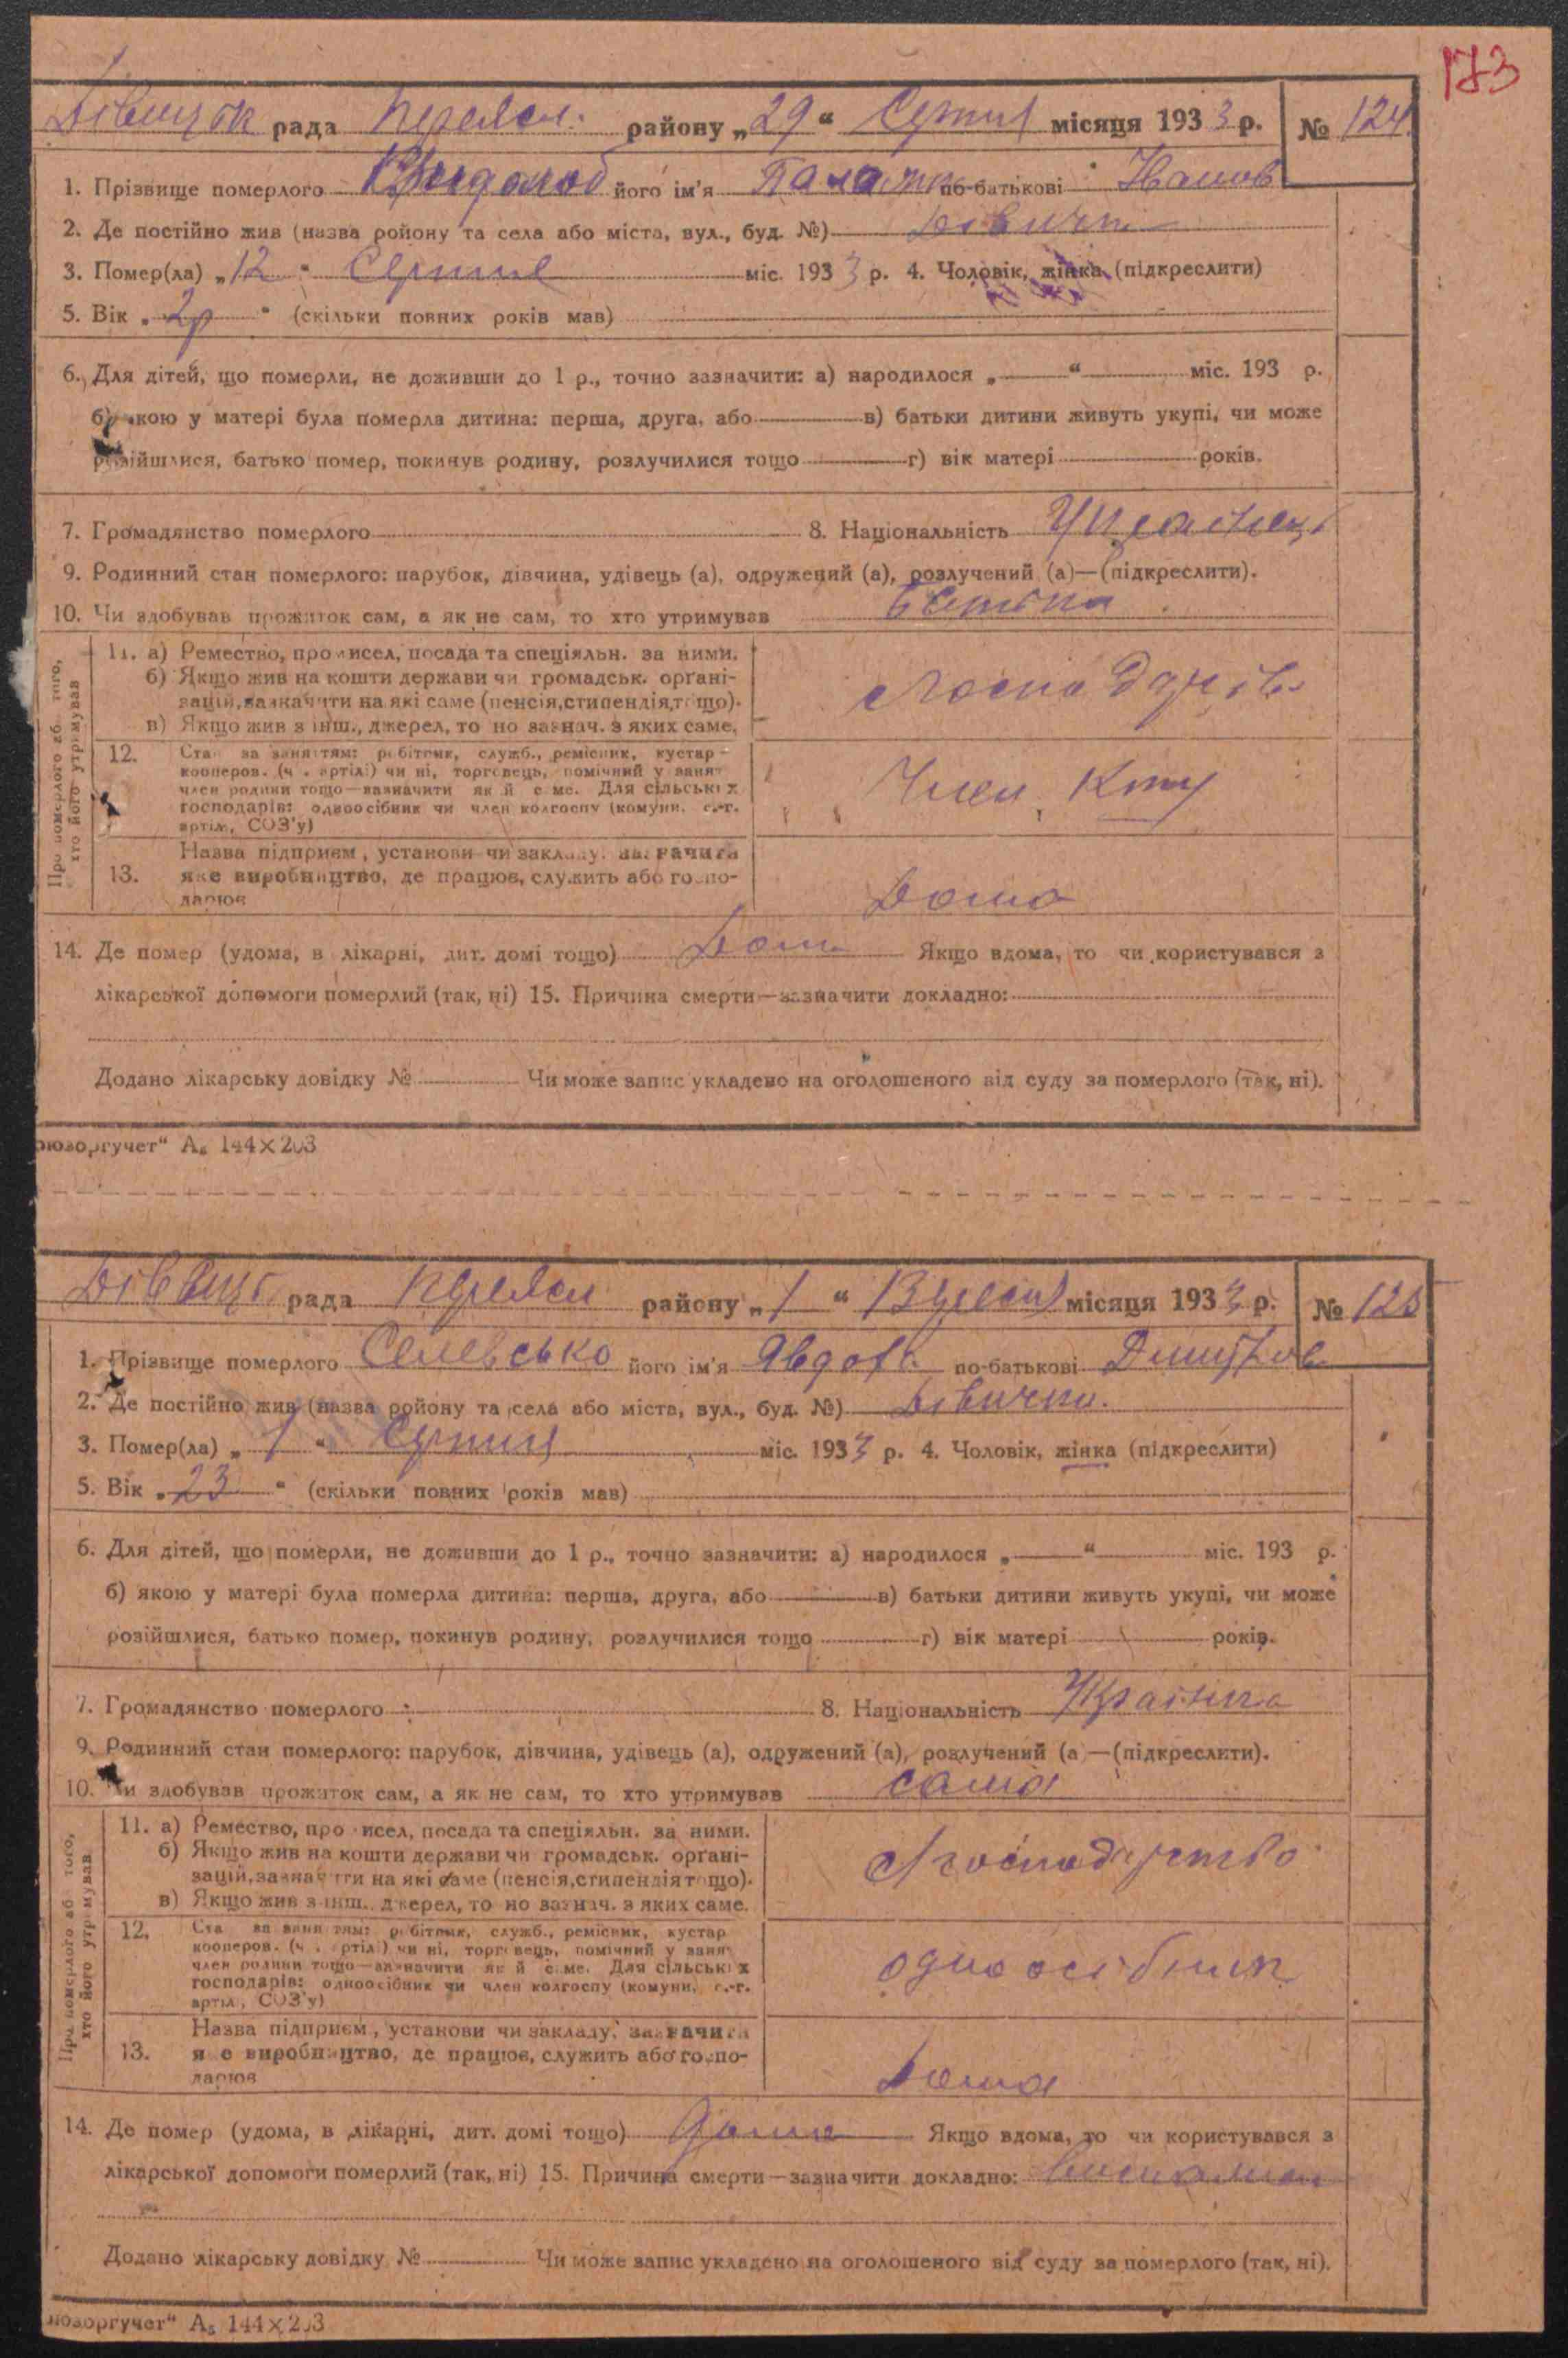 173
рада Переясл. району „29“ Серпня місяця 1933 р. № 124
1. Прізвище померлого його ім'я по-батькові Іванов
2. Де постійно жив (назва ройону та села або міста, вул., буд. №) Дівички
3. Помер(ла) „12“ Серпня міс. 1933 р. 4. Чоловік, жінка (підкреслити)
5. Вік „2р“ (скільки повних років мав)
6. Для дітей, що померли, не доживши до 1 р., точно зазначити: а) народилося „ “ міс. 193 р.
б) якою у матері була померла дитина: перша, друга, або в) батьки дитини живуть укупі, чи може
розійшлися, батько помер, покинув родину, розлучилися тощо г) вік матері років.
7. Громадянство померлого 8. Національність
9. Родинний стан померлого: парубок, дівчина, удівець (а), одружений (а), розлучений (а)—(підкреслити).
10. Чи здобував прожиток сам, а як не сам, то хто утримував
Про померлого або того, хто його утримував
11. а) Ремество, промисел, посада та спеціяльн. за ними.
б) Якщо жив на кошти держави чи громадськ. орґані-
зацій, зазначити на які саме (пенсія, стипендія, тощо).
в) Якщо жив з інш., джерел, то но зазнач. з яких саме.
12. Стан за заняттям: робітник, служб., ремісник, кустар
кооперов. (ч . артілі) чи ні, торговець, помічний у занят
член родини тощо—вазначити як й саме. Для сільських
господарів: одноосібник чи член колгоспу (комуни, с.-г.
артіл, СОЗ'у)
Член
Назва підприєм, установи чи закладу, зазначити
13. яке виробництво, де працює, служить або госпо-
дарює
Дома
14. Де помер (удома, в лікарні, дит. домі тощо) Дома Якщо вдома, то чи користувався з
лікарської допомоги померлий (так, ні) 15. Причина смерти—зазначити докладно:
Додано лікарську довідку № Чи може запис укладено на оголошеного від суду за померлого (так, ні).
юзоргучет“ А₅ 144×203
рада Переясл району „1“ Вресня місяця 1933 р. № 125
1. Прізвище померлого його ім'я Явдоха по-батькові Дмитров
2. Де постійно жив (назва ройону та села або міста, вул., буд. №) Дівички.
3. Помер(ла) „1“ Серпня міс. 1933 р. 4. Чоловік, жінка (підкреслити)
5. Вік „23“ (скільки повних років мав)
6. Для дітей, що померли, не доживши до 1 р., точно зазначити: а) народилося „ “ міс. 193 р.
б) якою у матері була померла дитина: перша, друга, або в) батьки дитини живуть укупі, чи може
розійшлися, батько помер, покинув родину, розлучилися тощо г) вік матері років.
7. Громадянство померлого 8. Національність
9. Родинний стан померлого: парубок, дівчина, удівець (а), одружений (а), розлучений (а —(підкреслити).
10. Чи здобував прожиток сам, а як не сам, то хто утримував сама
Про померлого або того, хто його утримував
11. а) Ремество, промисел, посада та спеціяльн. за ними.
б) Якщо жив на кошти держави чи громадськ. орґані-
зацій, зазначити на які саме (пенсія, стипендія тощо).
в) Якщо жив з інш., джерел, то но зазнач. з яких саме.
12. Ста за заняттям: робітник, служб., ремісник, кустар
кооперов. (ч . артілі) чи ні, торговець, помічний у занят
член родини тощо—зазначити як й саме. Для сільських
господарів: одноосібник чи член колгоспу (комуни, с.-г.
артіл, СОЗ'у)
одноосібник
Назва підприєм, установи чи закладу, зазначити
13. яке виробництво, де працює, служить або госпо-
дарює
Дома
14. Де помер (удома, в лікарні, дит. домі тощо) Дома Якщо вдома, то чи користувався з
лікарської допомоги померлий (так, ні) 15. Причина смерти—зазначити докладно:
Додано лікарську довідку № Чи може запис укладено на оголошеного від суду за померлого (так, ні).
юзоргучет“ А₅ 144×203